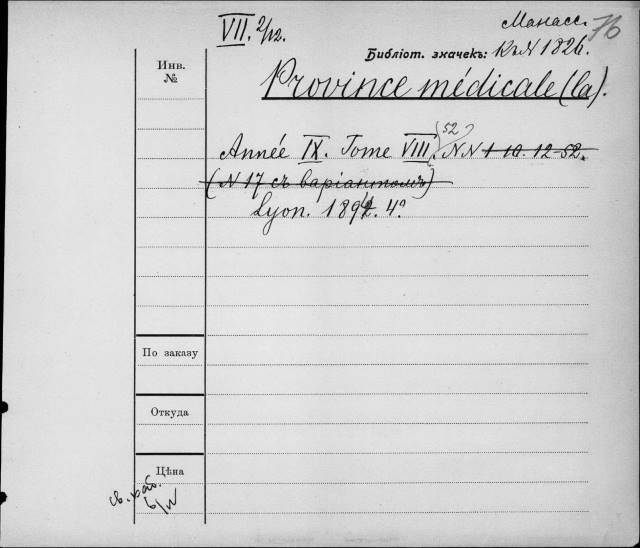 VII. 2/12.
Манасс. 76
Библіот. значекъ: К. N 1826.
Инв.
№
Province médicale (la).
Année IX. Tome VIII. (52) NN 1-10. 12-52.
(N 17 съ варіантомъ)
Lyon. 1894. 4°.
По заказу
Откуда
Цѣна
св. каб.
b/N